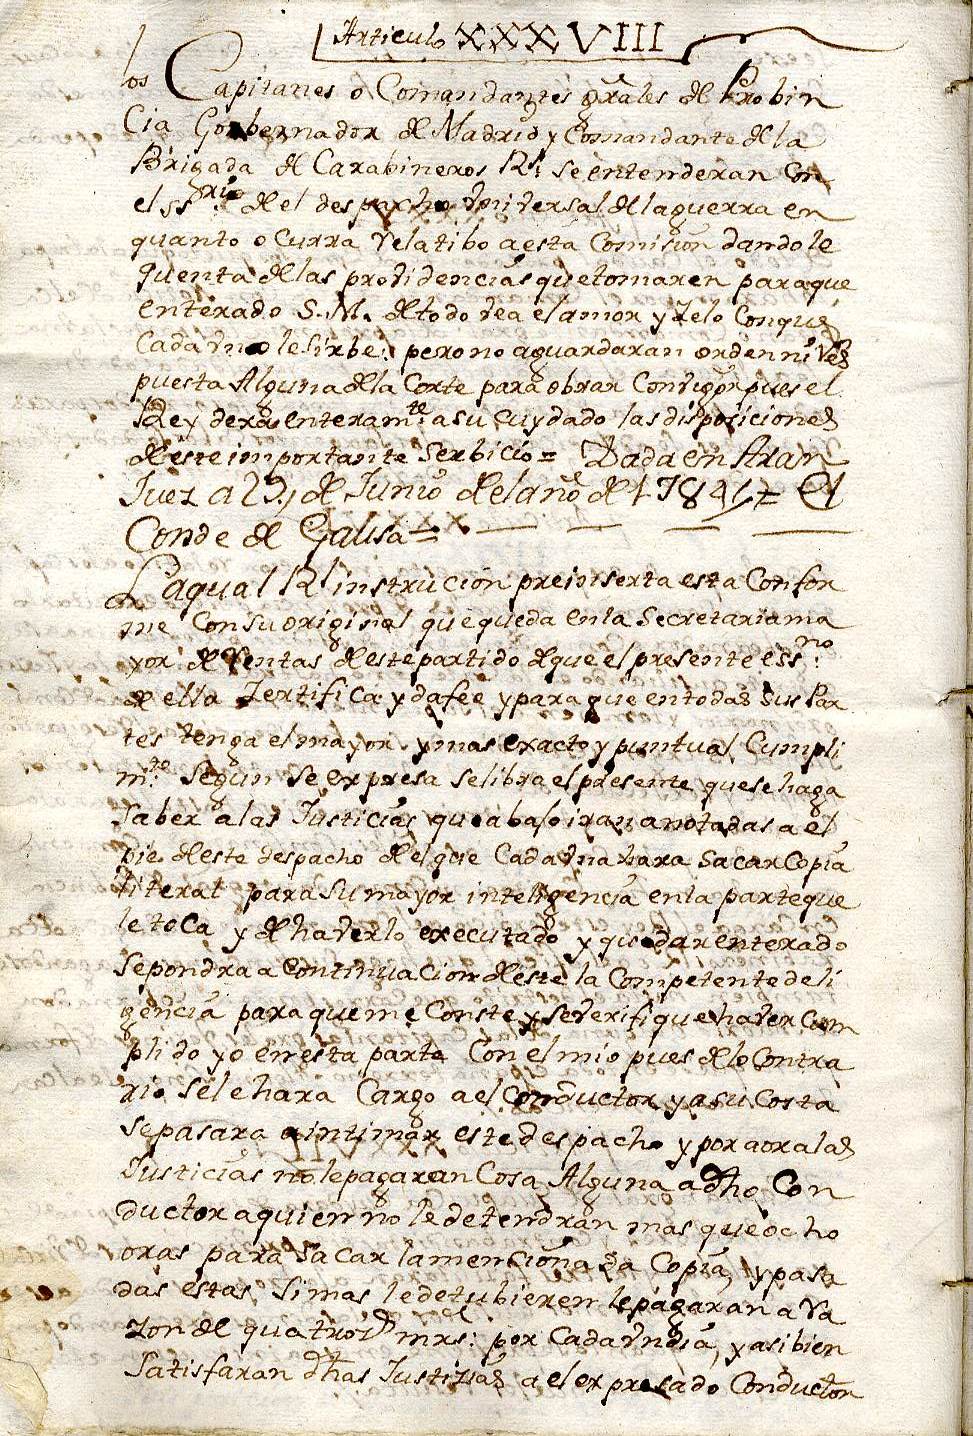 Articulo XXXVIII
los Capitanes o Comandantes grales de Probin
Cia Gobernador de Madrid y Comandante de la
Brigada de Carabineros Rs. se entenderan Con
el ssrio. de el despacho Vniversal de la guerra en
quanto o Curra relatibo a esta Comision dandole
quenta de las providencias que tomaren para que
enterado S. M. de todo vea el amor y Zelo Conque
Cada vno le Sirbe: pero no aguardaran orden ni Res
puesta Alguna de la Corte para obrar Con vigor pues el
Rey dexa enteramte. a su Cuydado las disposiciones
de este importante Serbicio = Dada en Aran
Juez a 29, de Junio de el año de 1784 = El
Conde de Gausa =
La qual Rl instrucion preinserta esta Confor
me Con su original que queda en la Secretaria ma
yor de Rentas de este partido de que el presente essno.
de ella Zertifica y da fee y para que en todas sus Par
tes tenga el mayor y mas exacto y puntual Cumpli
mte. Segun se expresa se libra el presente que se haga
Saber a las Justicias que abaso iran anotadas a el
pie de este despacho de el que Cada vna hara sacar Copia
literal para su mayor inteligencia en la parte que
le toCa y de haverlo executado y quedar enterado
se pondra a Continuacion de este la Competente deli
gencia para que me Conste y se verifique haver Cum
plido yo en esta parte Con el mio pues de lo Contra
rio se le hara Cargo a el Conductor y a su Costa
se pasara a intimar este despacho y por aora las
Justicias no le pagaran Cosa Alguna a dho Con
ductor a quien no le detendran mas que ocho
oras para sacar la mencionada Copia, y pasa
das estas, si mas le detubieren le pagaran a Ra
zon de quatro rd mrs: por Cada vn dia, y asi bien
Satisfaran dhas Justizias a el expresado Conductor